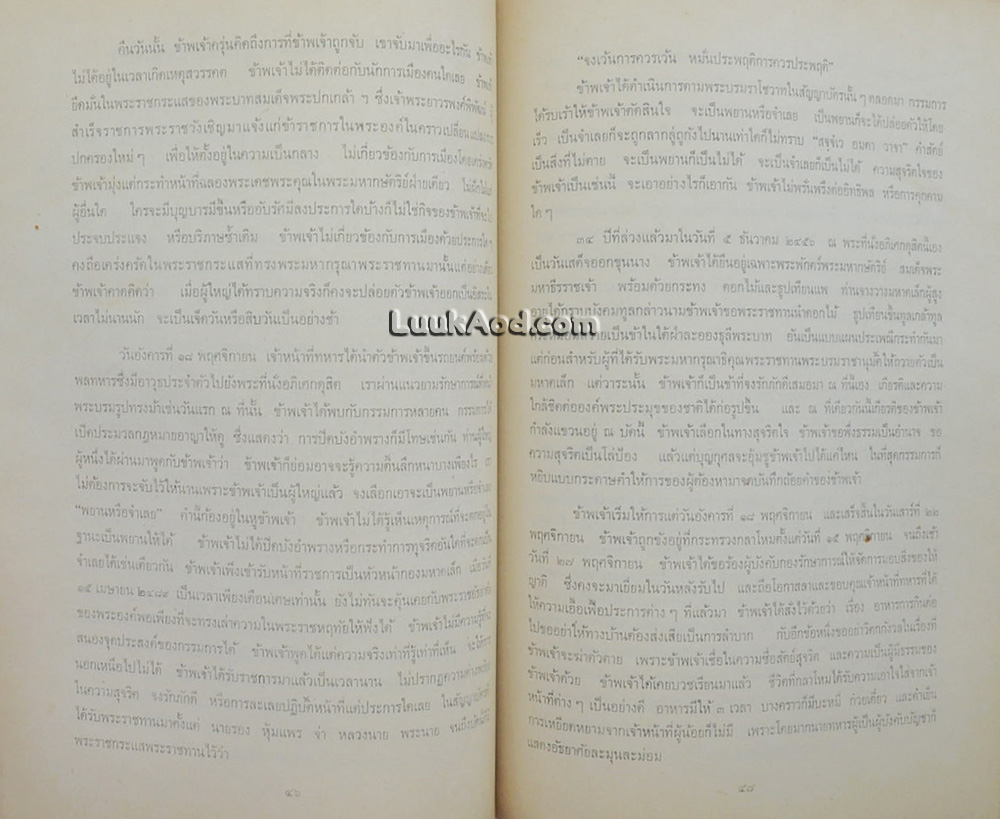 คืนวันนั้น ข้าพเจ้าครุ่นคิดถึงการที่ข้าพเจ้าถูกจับ เขาจับมาเพื่ออะไรกัน
ไม่ได้อยู่ในเวลาเกิดเหตุสวรรคต ข้าพเจ้าไม่ได้ติดต่อกับนักการเมืองคนใดเลย
ยึดมั่นในพระราชกระแสของพระบาทสมเด็จพระปกเกล้า ฯ ซึ่งเจ้าพระยาวรพงศ์พิพัฒน์
สำเร็จราชการพระราชวังเชิญมาแจ้งแก่ข้าราชการในพระองค์ในคราวเปลี่ยน
ปกครองใหม่ ๆ เพื่อให้ตั้งอยู่ในความเป็นกลาง ไม่เกี่ยวข้องกับการเมืองโดย
ข้าพเจ้ามุ่งแต่กระทำหน้าที่ฉลองพระเดชพระคุณในพระมหากษัตริย์ฝ่ายเดียว
ผู้อื่นใด ใครจะมีบุญบารมีขึ้นหรืออับรัศมีลงประการใดบ้างก็ไม่ใช่กิจของข้าพเจ้าที่จะ
ประจบประแจง หรือบริภาษซ้ำเติม ข้าพเจ้าไม่เกี่ยวข้องกับการเมืองด้วยประการใด ๆ
คงถือเคร่งครัดในพระราชกระแสที่ทรงพระมหากรุณาพระราชทานมานั้นแต่อย่างเดียว
ข้าพเจ้าคาดคิดว่า เมื่อผู้ใหญ่ได้ทราบความจริงก็คงจะปล่อยตัวข้าพเจ้าออกเป็นอิสระใน
เวลาไม่นานนัก จะเป็นเจ็ดวันหรือสิบวันเป็นอย่างช้า
วันอังคารที่ ๑๘ พฤศจิกายน เจ้าหน้าที่ทหารได้นำตัวข้าพเจ้าขึ้นรถยนต์
พลทหารซึ่งมีอาวุธประจำตัวไปยังพระที่นั่งอภิเศกดุสิต เราผ่านแนวยามรักษาการณ์
พระบรมรูปทรงม้าเช่นวันแรก ณ ที่นั้น ข้าพเจ้าได้พบกับกรรมการหลายคน กรรมการได้
เปิดประมวลกฎหมายอาญาให้ดู ซึ่งแสดงว่า การปิดบังอำพรางก็มีโทษเช่นกัน
ผู้หนึ่งได้ผ่านมาพูดกับข้าพเจ้าว่า ข้าพเจ้าก็ย่อมอาจจะรู้ความตื้นลึกหนาบางเพียงไร
ไม่ต้องการจะจับไว้ให้นานเพราะข้าพเจ้าเป็นผู้ใหญ่แล้ว จงเลือกเอาจะเป็นพยานหรือ
"พยานหรือจำเลย" คำนี้ก้องอยู่ในหูข้าพเจ้า ข้าพเจ้าไม่ได้รู้เห็นเหตุการณ์ที่จะ
ฐานะเป็นพยานให้ได้ ข้าพเจ้าไม่ได้ปิดบังอำพรางหรือกระทำการทุจริตอันใดที่จะ
จำเลยได้เช่นเดียวกัน ข้าพเจ้าเพิ่งเข้ารับหน้าที่ราชการเป็นหัวหน้ากองมหาดเล็ก
๑๕ เมษายน ๒๔๘๙ เป็นเวลาเพียงเดือนเศษเท่านั้น ยังไม่ทันจะคุ้นเคยกับพระราช
ของพระองค์พอเพียงที่จะทรงเล่าความในพระราชหฤทัยให้ฟังได้ ข้าพเจ้าไม่มีความรู้
สนองจุดประสงค์ของกรรมการได้ ข้าพเจ้าพูดได้แต่ความจริงเท่าที่รู้เท่าที่เห็น จะให้
นอกเหนือไปไม่ได้ ข้าพเจ้าได้รับราชการมาแล้วเป็นเวลานาน ไม่ปรากฏความ
ในความสุจริต จงรักภักดี หรือการละเลยปฏิบัติหน้าที่แต่ประการใดเลย
ได้รับพระราชทานมาตั้งแต่ นายรอง หุ้มแพร จ่า หลวงนาย พระนาย
พระราชกระแสพระราชทานไว้ว่า
๔๖
"จงเว้นการควรเว้น หมั่นประพฤติการควรประพฤติ"
ข้าพเจ้าได้ดำเนินการตามพระบรมราโชวาทในสัญญาบัตรนั้น ๆ ตลอดมา กรรมการ
ได้รบเร้าให้ข้าพเจ้าตัดสินใจ จะเป็นพยานหรือจำเลย เป็นพยานก็จะได้ปล่อยตัวให้โดย
เร็ว เป็นจำเลยก็จะถูกลากลู่ถูกังไปนานเท่าใดก็ไม่ทราบ "สจฺจํเว อมตา วาจา" คำสัตย์
เป็นสิ่งที่ไม่ตาย จะเป็นพยานก็เป็นไม่ได้ จะเป็นจำเลยก็เป็นไม่ได้ ความสุจริตใจของ
ข้าพเจ้าเป็นเช่นนี้ จะเอาอย่างไรก็เอากัน ข้าพเจ้าไม่พรั่นพรึงต่ออิทธิพล หรือการคุกคาม
ใด ๆ
๓๔ ปีที่ล่วงแล้วมาในวันที่ ๕ ธันวาคม ๒๔๕๖ ณ พระที่นั่งอภิเศกดุสิตนี้เอง
เป็นวันเสด็จออกขุนนาง ข้าพเจ้าได้ยืนอยู่เฉพาะพระพักตร์พระมหากษัตริย์ สมเด็จพระ
มหาธีรราชเจ้า พร้อมด้วยกระทง ดอกไม้และธูปเทียนแพ ท่านจางวางมหาดเล็กผู้สูง
อายุได้กราบบังคมทูลกล่าวนามข้าพเจ้าขอพระราชทานนำดอกไม้ ธูปเทียนขึ้นทูลเกล้าทูล
เป็นข้าในใต้ฝ่าละอองธุลีพระบาท อันเป็นแบบแผนประเพณีกระทำกันมา
แต่ก่อนสำหรับผู้ที่ได้รับพระมหากรุณาธิคุณพระราชทานพระบรมราชานุมัติให้ถวายตัวเป็น
มหาดเล็ก แต่วาระนั้น ข้าพเจ้าก็เป็นข้าที่จงรักภักดีเสมอมา ณ ที่นี้เอง เกียรติและความ
ใกล้ชิดต่อองค์พระประมุขของชาติได้ก่อรูปขึ้น และ ณ ที่เดียวกันนี้เกียรติของข้าพเจ้า
กำลังแขวนอยู่ ณ บัดนี้ ข้าพเจ้าเลือกในทางสุจริตใจ ข้าพเจ้าขอพึ่งธรรมเป็นอำนาจ ขอ
ความสุจริตเป็นโล่ป้อง แล้วแต่บุญกุศลจะอุ้มชูข้าพเจ้าไปได้แค่ไหน ในที่สุดกรรมการก็
หยิบแบบกระดาษคำให้การของผู้ต้องหามาจดบันทึกถ้อยคำของข้าพเจ้า
ข้าพเจ้าเริ่มให้การแต่วันอังคารที่ ๑๘ พฤศจิกายน และเสร็จสิ้นในวันเสาร์ที่ ๒๒
พฤศจิกายน ข้าพเจ้าถูกขังอยู่ที่กระทรวงกลาโหมตั้งแต่วันที่ ๑๕ พฤศจิกายน จนถึงเช้า
วันที่ ๒๗ พฤศจิกายน ข้าพเจ้าได้ขอร้องผู้บังคับกองรักษาการณ์ให้จัดการมอบสิ่งของให้
ญาติ ซึ่งคงจะมาเยี่ยมในวันหลังรับไป และถือโอกาสลาและขอบคุณเจ้าหน้าที่ทหารที่ได้
ให้ความเอื้อเฟื้อประการต่าง ๆ ที่แล้วมา ข้าพเจ้าได้สั่งไว้ด้วยว่า เรื่อง อาหารการกินต่อ
ไปขออย่าให้ทางบ้านต้องส่งเสียเป็นการลำบาก กับอีกข้อหนึ่งขออย่าวิตกกังวลในเรื่องที่
ข้าพเจ้าจะฆ่าตัวตาย เพราะข้าพเจ้าเชื่อในความซื่อสัตย์สุจริต และความเป็นผู้มีธรรมของ
ข้าพเจ้าด้วย ข้าพเจ้าได้เคยบวชเรียนมาแล้ว ชีวิตที่กลาโหมได้รับความเอาใจใส่จากเจ้า
หน้าที่ต่าง ๆ เป็นอย่างดี อาหารมีให้ ๓ เวลา บางคราวก็มีบะหมี่ ก๋วยเตี๋ยว
การเหยียดหยามจากเจ้าหน้าที่ผู้น้อยก็ไม่มี เพราะโดยมากนายทหารผู้เป็นผู้บังคับบัญชาก็
แสดงอัธยาศัยละมุนละม่อม
๔๘
LuukAod.com